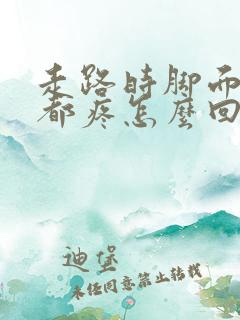 走路时脚而
都疼怎麽回
迪堡
未经同意禁止转载